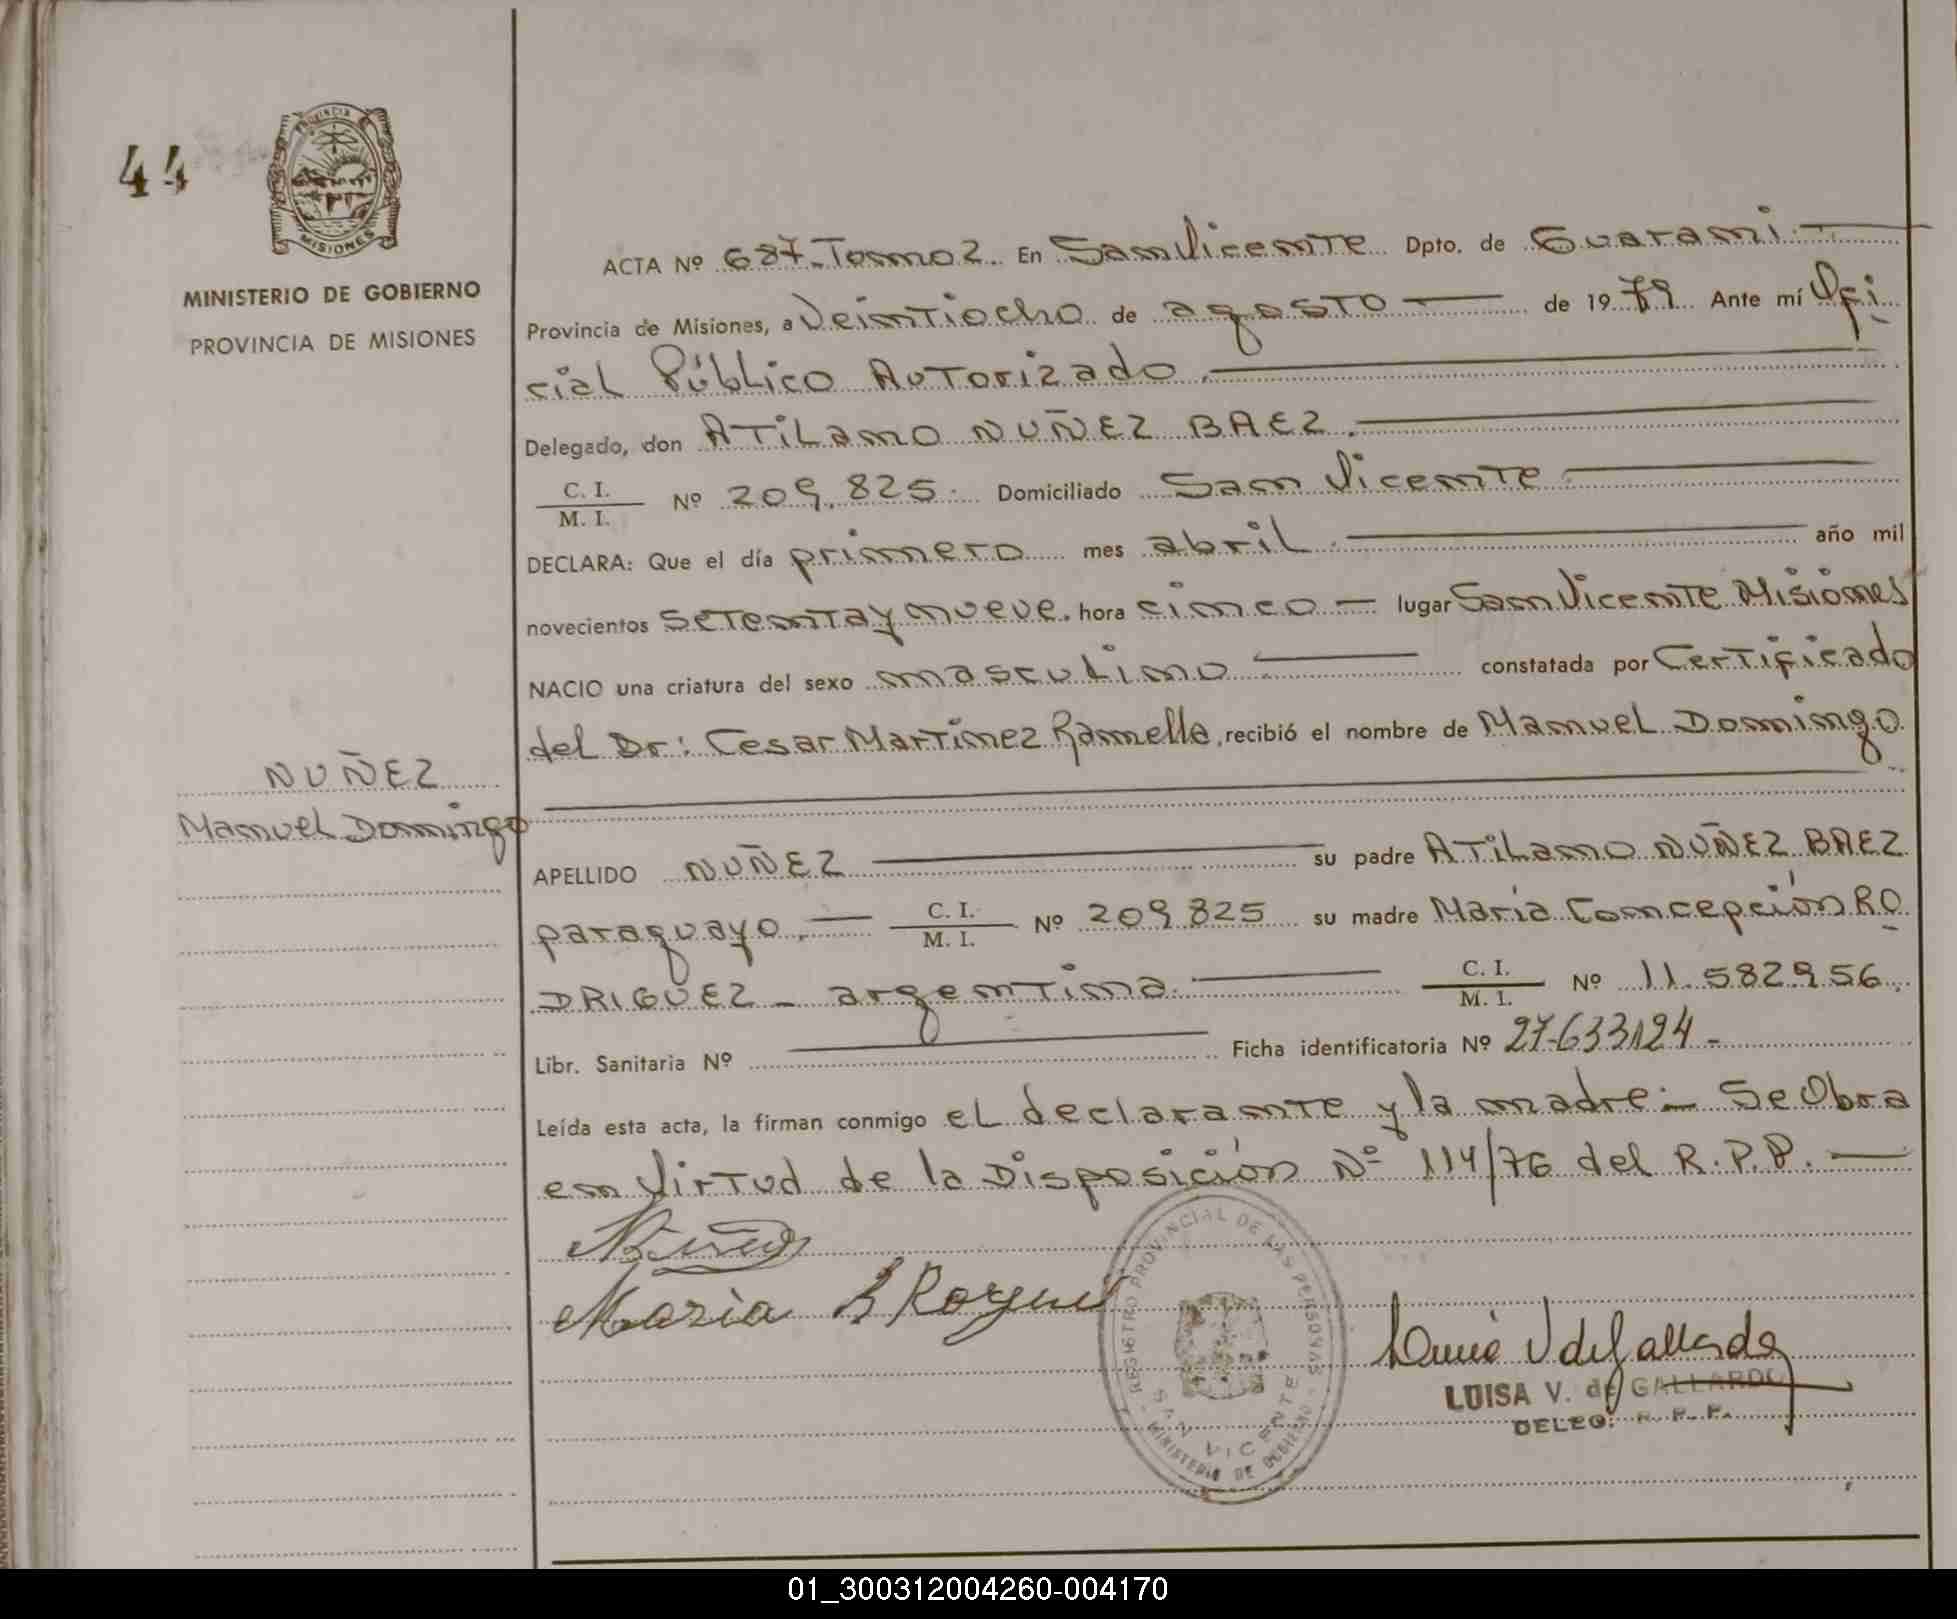 44
PROVINCIA
MISIONES
MINISTERIO DE GOBIERNO
PROVINCIA DE MISIONES
ACTA Nº 687-Tomo 2. En San Vicente Dpto. de Guarani
Provincia de Misiones, a Veintiocho de agosto de 1979 Ante mí Ofi
cial Público Autorizado.
Delegado, don ATiLano NUÑEZ BAEZ.
C. I.
M. I. Nº 209.825. Domiciliado San Vicente
DECLARA: Que el día primero mes abril. año mil
novecientos setenta y nueve. hora cinco lugar San Vicente Misiones
NACIO una criatura del sexo masculino constatada por Certificado
del Dr: Cesar Martinez Ramella, recibió el nombre de Manuel Domingo
NUÑEZ
Manuel Domingo
APELLIDO NUÑEZ su padre ATiLano NUÑEZ BAEZ
paraguayo. C. I.
M. I. Nº 209.825 su madre Maria Concepción RO
DRIGUEZ - argentina. C. I.
M. I. Nº 11.582.956.
Libr. Sanitaria Nº Ficha identificatoria Nº 27.633.124 -
Leída esta acta, la firman conmigo el declarante y la madre:- Se Obra
en Virtud de la Disposición Nº 114/76 del R.P.P.
Maria
REGISTRO PROVINCIAL DE LAS PERSONAS
SAN VICENTE
MINISTERIO DE GOBIERNO
Luisa V de Gallardo
LUISA V. de GALLARDO
DELEG. R. P. P.
01_300312004260-004170